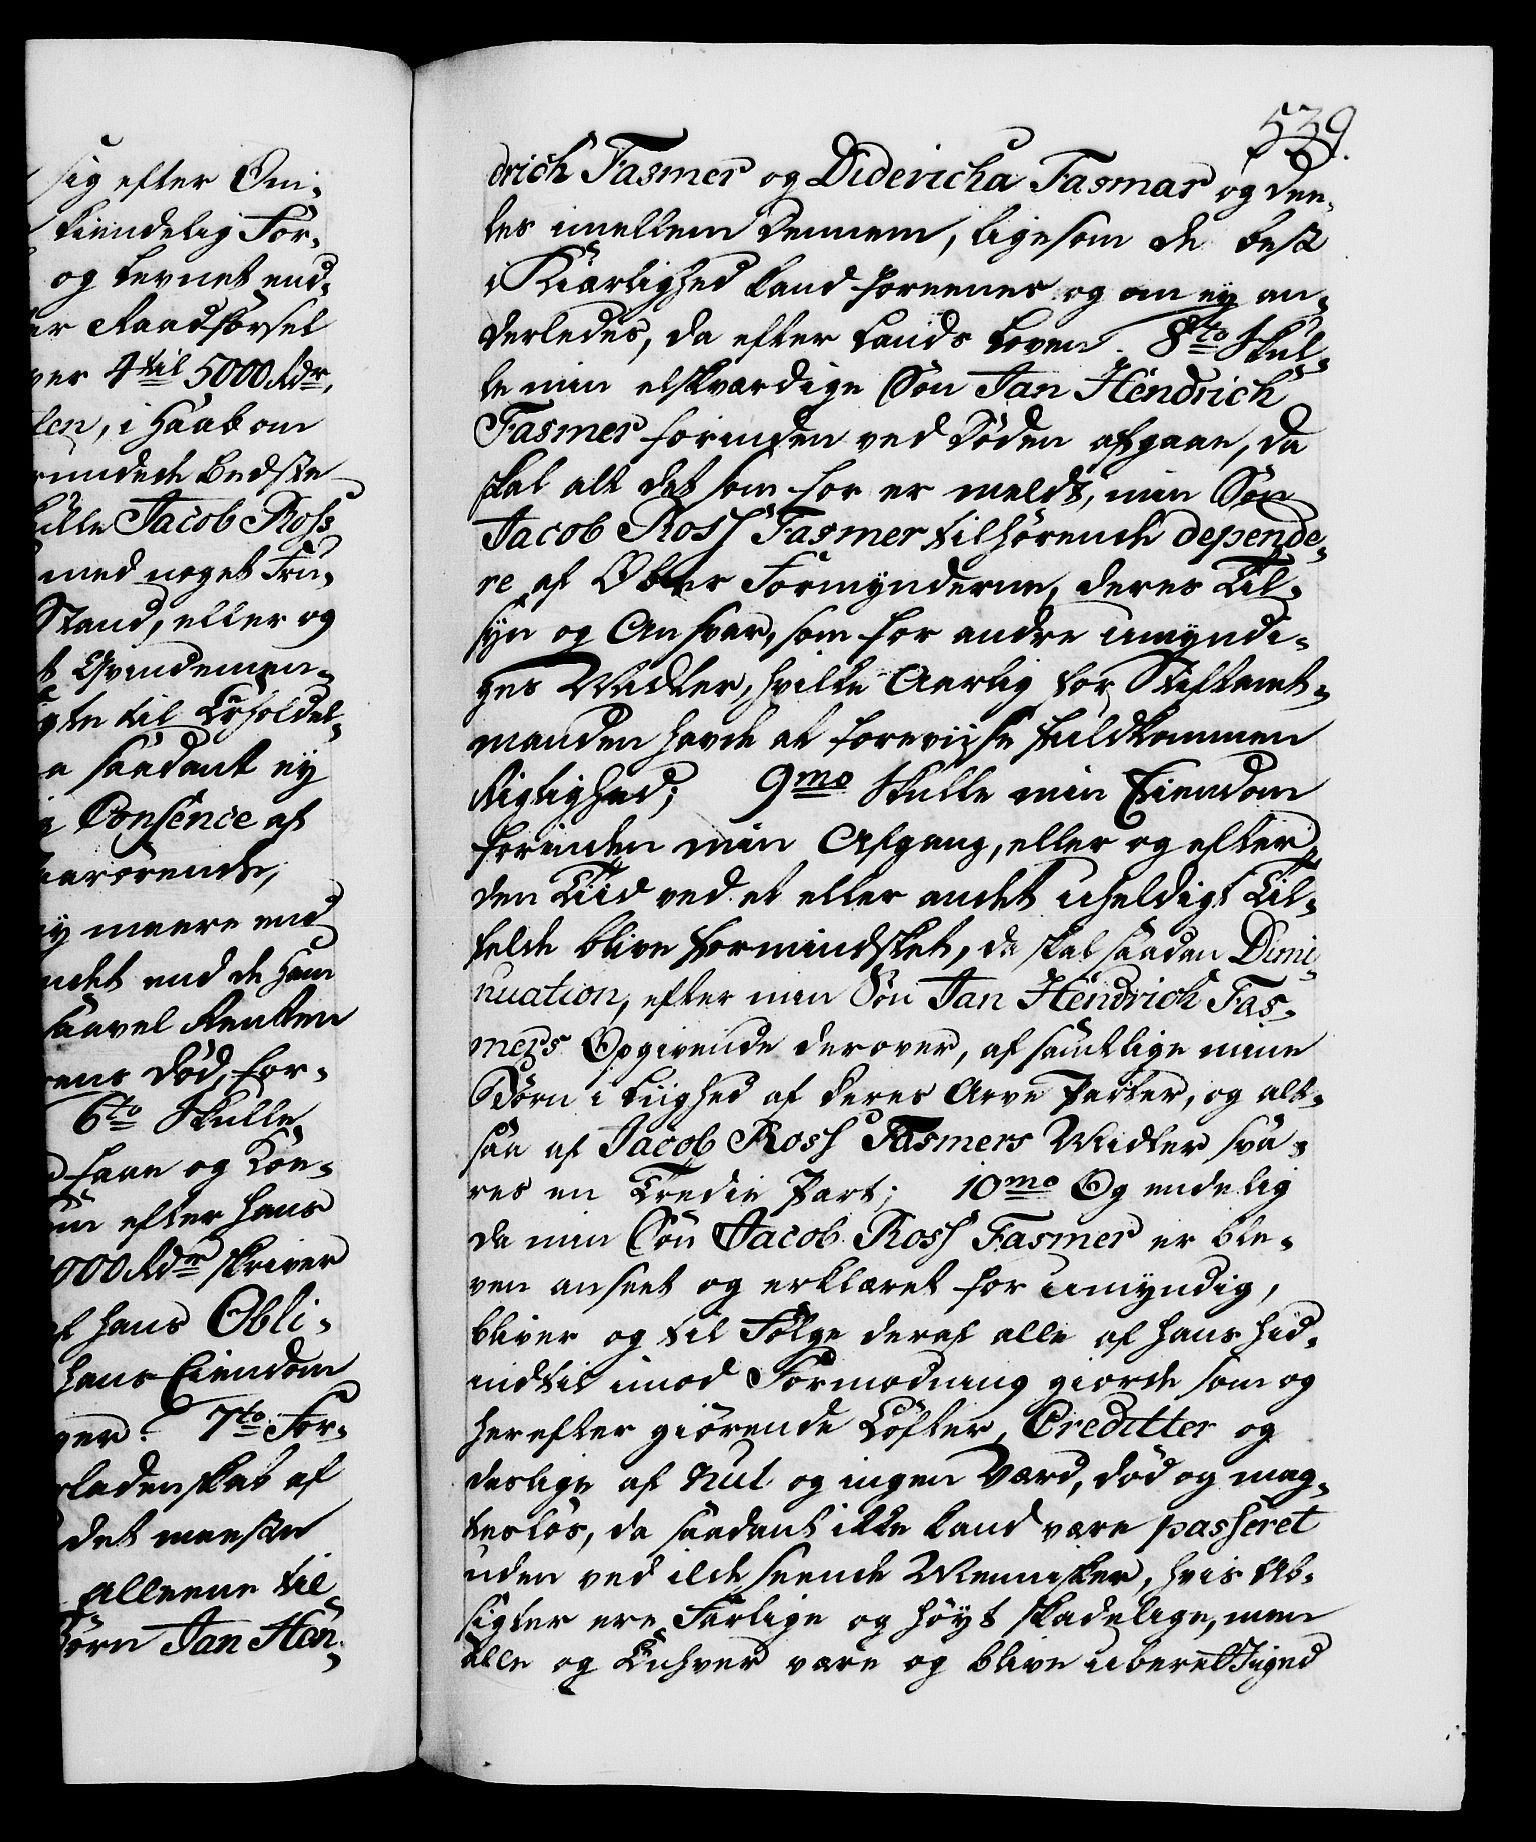 sig efter Om-
kiendelig For-
og levnet end-
er Raadförsel
ver 4 til 5000 Rdr,
len, i Haab om
rundede Bedste
ille Jacob Ross
med noget Fru-
Stand, eller og
t Qvindemen-
gte til Ophold
a saadant ey
Consence af
aarörende,
y meere end
ndet end de ham
saavel Renten
ens Död, for-
6to Skulle
faae og Kon-
efter hans
000 Rdr skriver
af hans Obli-
hans Eiendom
ger? 7to For-
ladenskab af
det meeste
alleene til
börn Jan Hen-
539.
drich Fasmer og Didericha Fasmar og dee-
les imellem dennem, ligesom de best
i Kiærlighed kand foreenes og om ey an-
derledes, da efter Lands Loven. 8to Skul-
le min elskværdige Sön Jan Hendrich
Fasmer forinden ved Döden afgaae, da
skal alt det som for er meldt, min Sön
Jacob Ross Fasmer tilhörende depende-
re af Ober Formynderne, deres Til-
syn og Ansvar, som for andre umyndi-
ges Midler, hvilke Aarlig for Stiftamt-
manden havde at foreviise fuldkommen
Rigtighed; 9mo Skulle min Eiendom
forinden min Afgang, eller og efter
den Tiid ved et eller andet uheldigt Til-
felde blive formindsket, da skal saadan Dimi-
nuation, efter min Sön Jan Hendrich Fas-
mers Opgivende derover, af samtlige mine
Börn i Liighed af deres Arve Parter, og alt-
saa af Jacob Ross Fasmers Midler sva-
res en Tredie Part; 10mo Og endelig
da min Sön Jacob Ross Fasmer er ble-
ven anseet og erklæret for umyndig,
bliver og til Fölge deraf alle af hans hid-
indtil imod Formodning giorde som og
herefter giörende Löfter, Creditter og
deslige af Nul og ingen Værd, död og mag-
teslös, da saadant ikke kand være passeret
uden ved ilde seende Mennisker, hvis Ab-
sigter ere farlige og höyt skadelige, men
alle og Enhver være og blive uberettiged